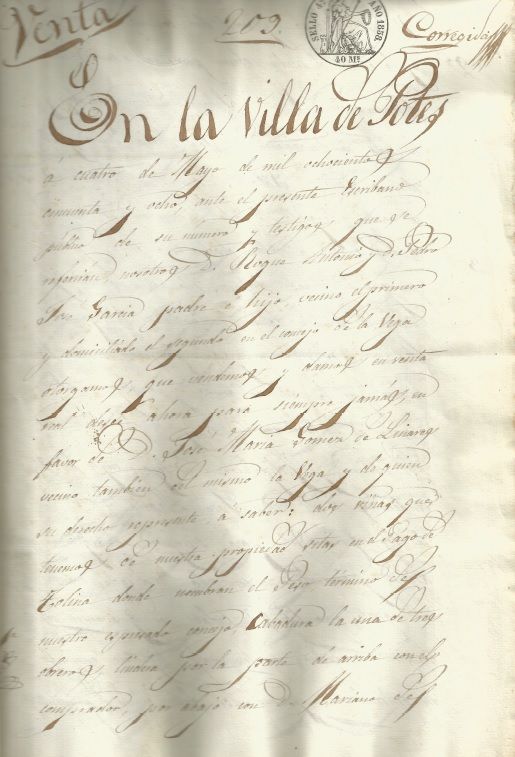 Venta 259. Corregida
SELLO 4º AÑO 1858.
40 Ms
En la Villa de Potes
á cuatro de Mayo de mil ochocientos
cincuenta y ocho, ante el presente Escribano
público de su número y testigos que se
referirán, nosotros D. Roque Antonio y D. Pedro
José Garcia padre é hijo, vecino el primero
y domiciliado el segundo en el concejo de la Vega
otorgamos que vendimos y damos en venta
real desde ahora para siempre jamás, en
favor de D. José Maria Gomez de Linares
vecino tambien del mismo la Vega y de quien
su derecho represente á saber: dos viñas que
tenemos de nuestra propiedad sitas en el Pago de
Tolina donde nombran el término de
nuestro espresado concejo, Cabadura la una de tres
obreros, linda por la parte de arriba con el
comprador, por abajo con D. Mariano de